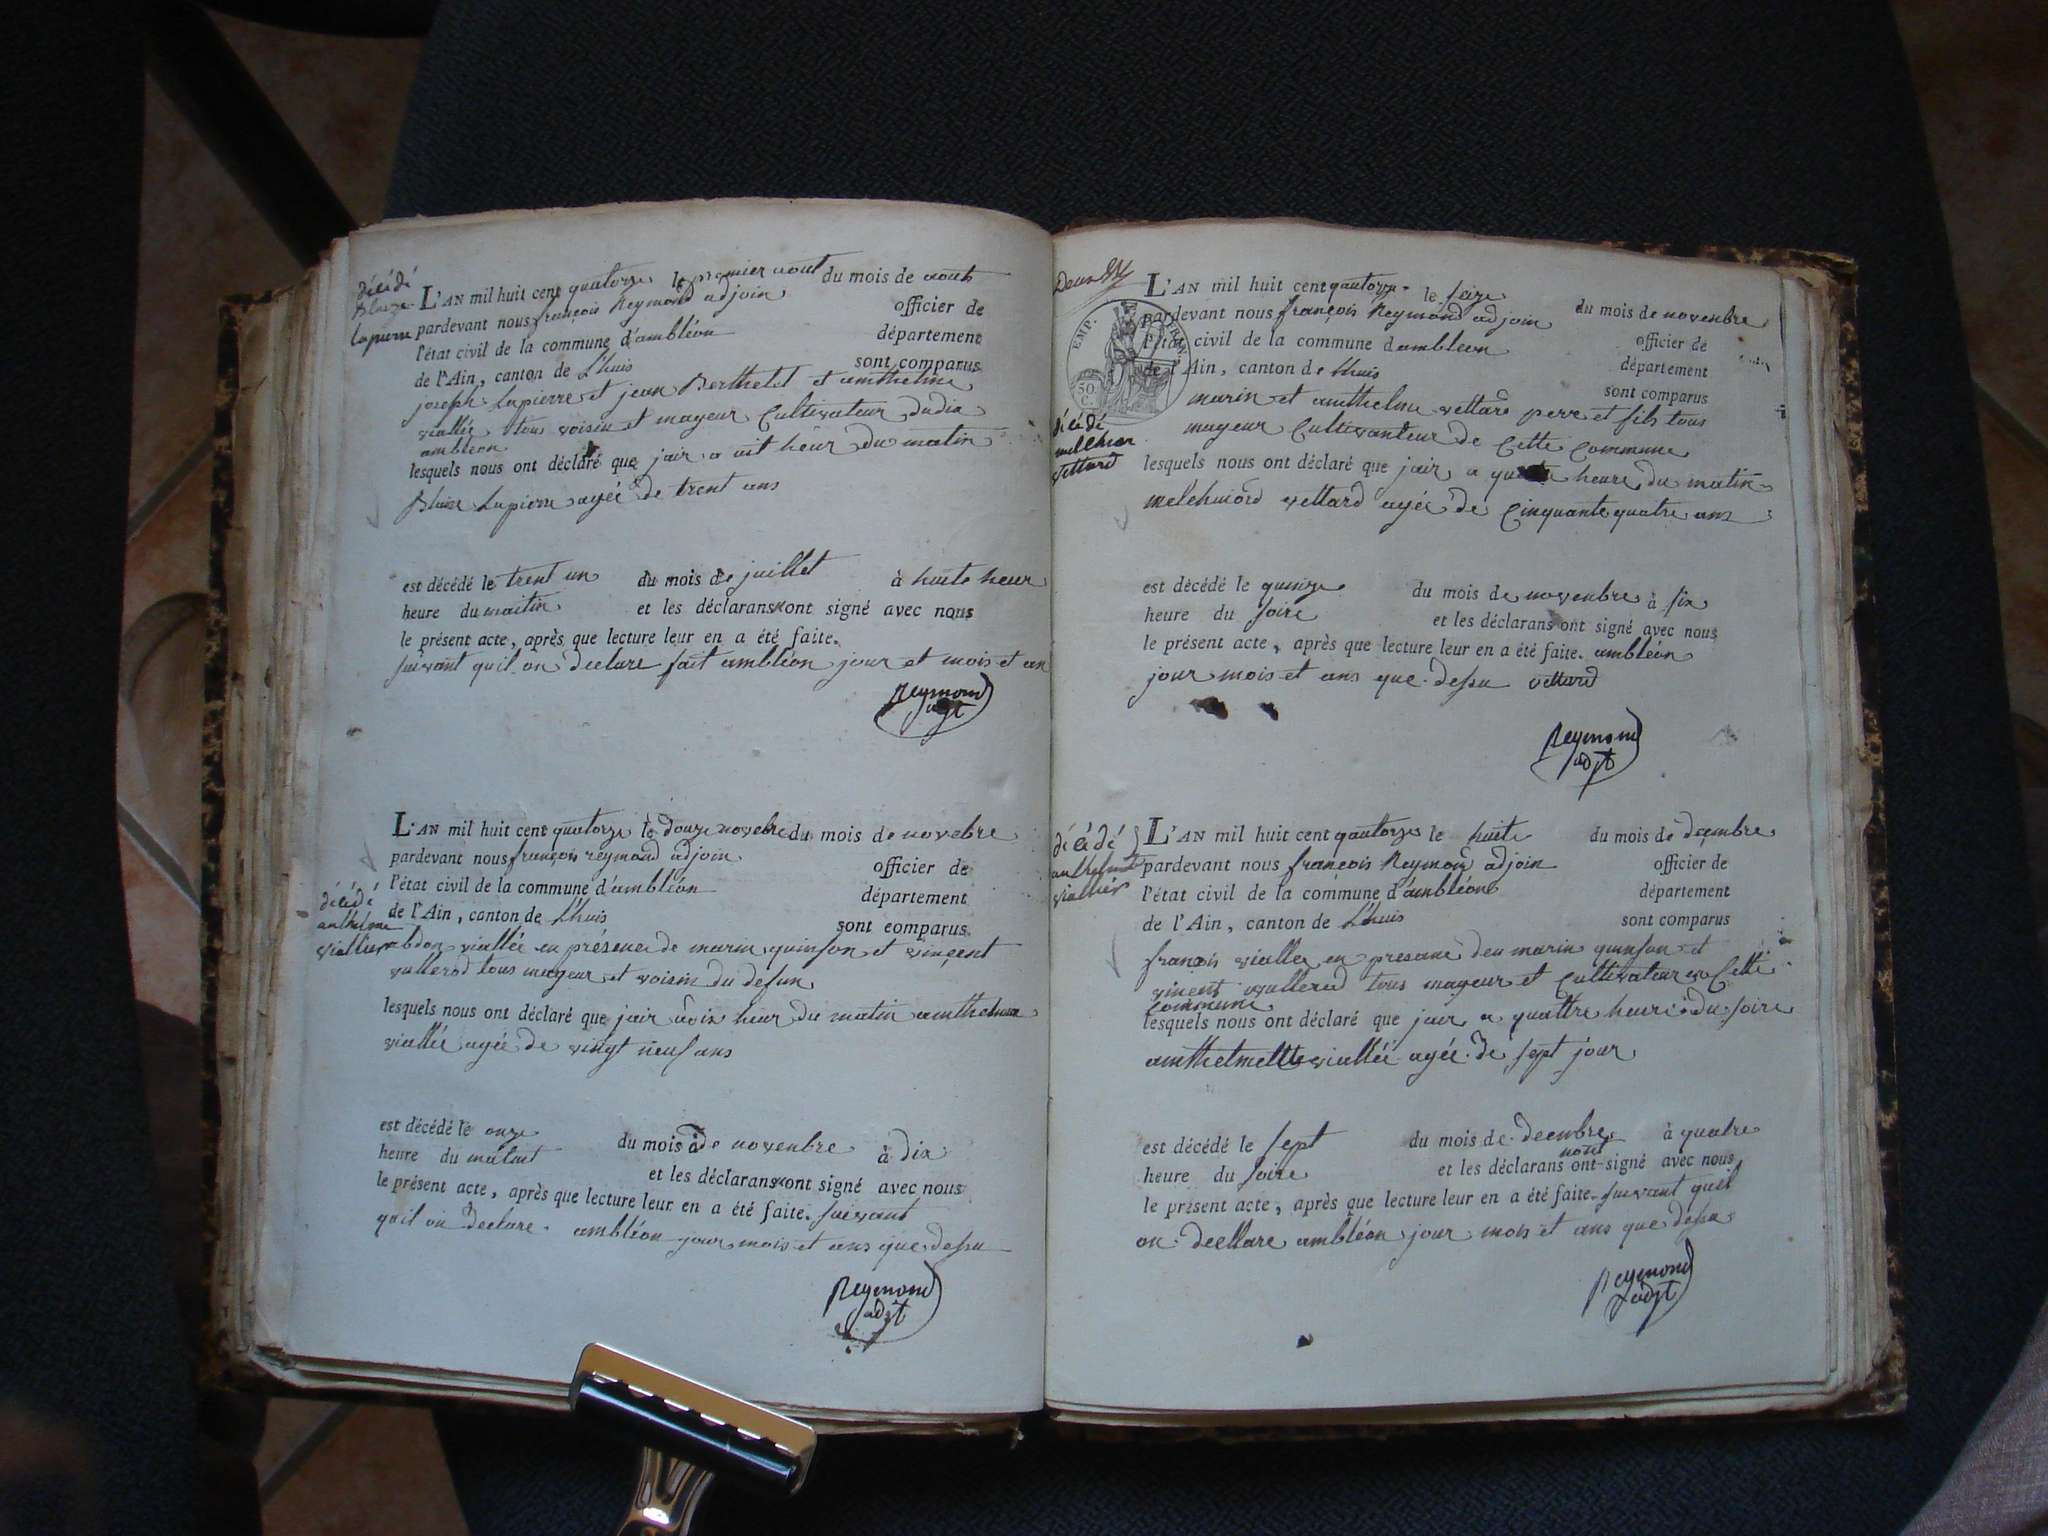 décédé
Blaize
lapierre
L'AN mil huit cent quatorze le premier aout du mois de aout
pardevant nous françois Reymond adjoin officier de
l'état civil de la commune d'ambléon département
de l'Ain, canton de L'huis sont comparus
joseph Lapierre et jean Berthelet et amthelme
viallée tous voisin et mayeur Cultivateur dudia
ambleon
lesquels nous ont déclaré que jair a uit heur du matin
Blaise Lapierre agée de trent ans
est décédé le trent un du mois de juillet à huite heur
heure du maitin et les déclarans ont signé avec nous
le présent acte, après que lecture leur en a été faite.
suivant quil on declare fait ambléon jour et mois et an
Reymond
adjt
L'AN mil huit cent quatorze le douze novebre du mois de novebre
pardevant nous françois reymond adjoin officier de
l'état civil de la commune d'ambléon département
de l'Ain, canton de L'huis sont comparus
décédé
anthelme
viallier
abdon viallée en présence de marin quinson et vincent
vullerod tous mayeur et voisin du defun
lesquels nous ont déclaré que jair a dix heur du matin amthelme
viallée agée de vingt neuf ans
est décédé le onze du mois de novenbre à dix
heure du matint et les déclarans ont signé avec nous
le présent acte, après que lecture leur en a été faite. suivant
quil on declare. ambléon jour mois et ans que dessu
Reymond
adjt
EMP. FRAN.
50 C.
décédé
melchior
vettard
L'AN mil huit cent quatorze le seize du mois de novenbre
pardevant nous françois Reymond adjoin officier de
l'état civil de la commune d'ambleon département
de l'Ain, canton de Lhuis sont comparus
marin et amthelme vettard pere et fils tous
mayeur Cultivanteur de Cette Commune
lesquels nous ont déclaré que jair a heure du matin
melchuiord vettard agée de Cinquante quatre ans
est décédé le quinze du mois de novenbre à six
heure du soire et les déclarans ont signé avec nous
le présent acte, après que lecture leur en a été faite. ambléon
jour mois et ans que dessu vettard
Reymond
adjt
décédé
viallier
L'AN mil huit cent quatorze le huite du mois de deçembre
pardevant nous françois Reymond adjoin officier de
l'état civil de la commune d'ambléon département
de l'Ain, canton de L'huis sont comparus
françois viallée en presane deu marin quinson et
vincent vullerod tous mayeur et Cultivateur de Cette
Commune
lesquels nous ont déclaré que jair a quattre heure du soire
amthelmette viallée agée de sept jour
est décédé le sept du mois de decenbre à quatre
heure du soire et les déclarans nont signé avec nous
le présent acte, après que lecture leur en a été faite. suivant quil
on decllare ambléon jour mois et ans que dessu
Reymond
adjt